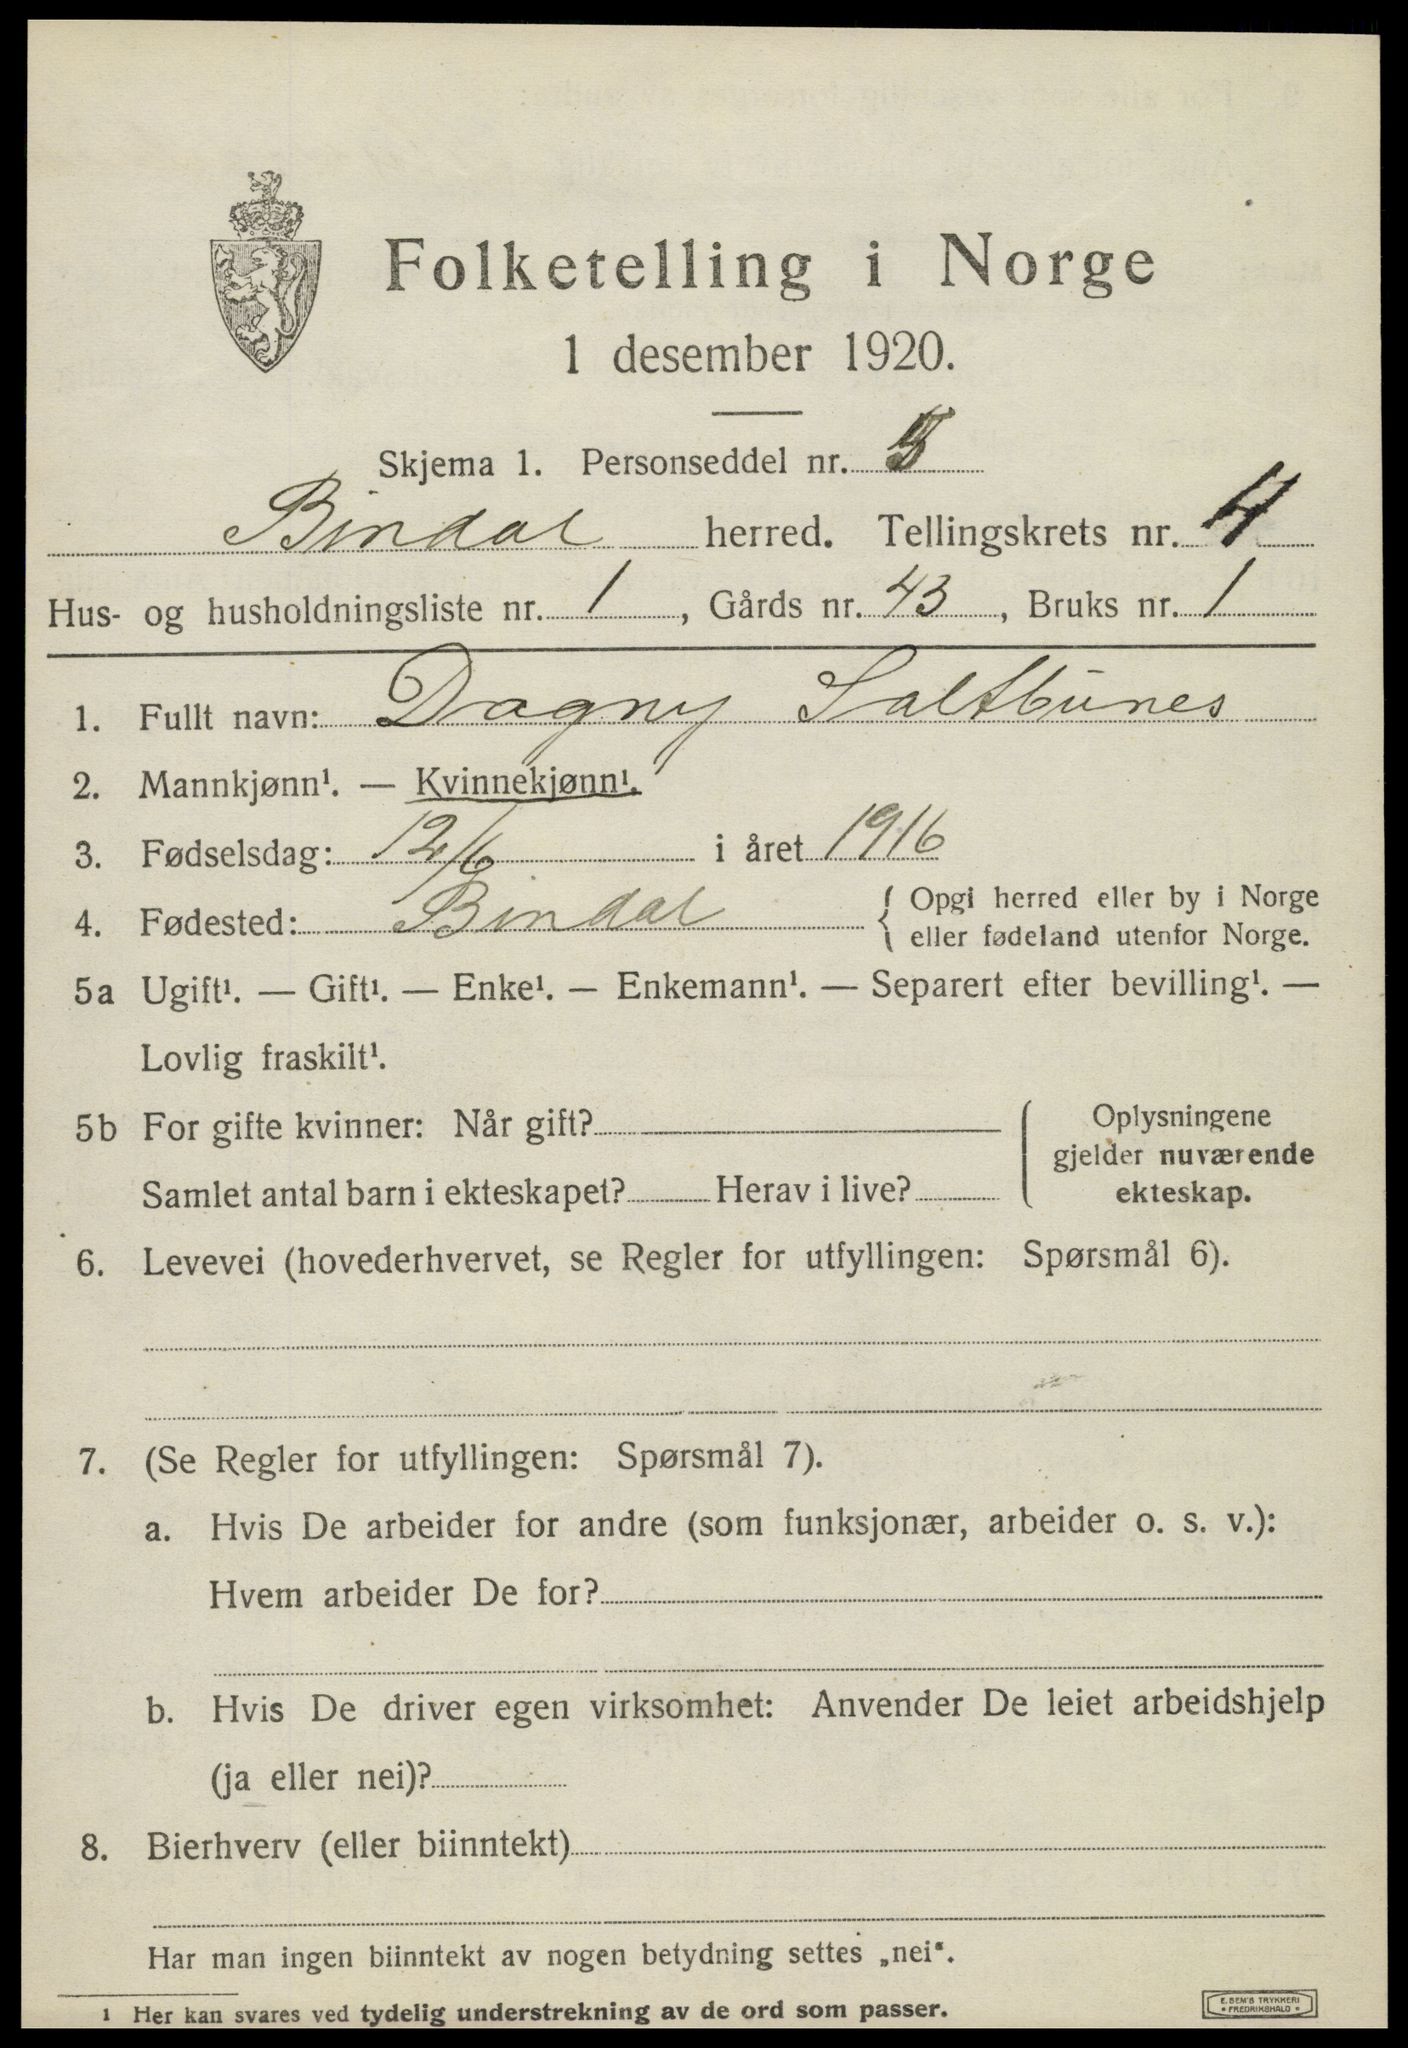 Folketelling i Norge
1 desember 1920.
Skjema 1. Personseddel nr. 5
Bindal herred. Tellingskrets nr. 4
Hus- og husholdningsliste nr. 1, Gårds nr. 43, Bruks nr. 1
1. Fullt navn: Dagny Saltbunes
2. Mannkjønn¹. — Kvinnekjønn¹.
3. Fødselsdag: 12/6 i året 1916
4. Fødested: Bindal { Opgi herred eller by i Norge
eller fødeland utenfor Norge.
5a Ugift¹. — Gift¹. — Enke¹. — Enkemann¹. — Separert efter bevilling¹. —
Lovlig fraskilt¹.
5b For gifte kvinner: Når gift?
Samlet antal barn i ekteskapet? Herav i live?
Oplysningene
gjelder nuværende
ekteskap.
6. Levevei (hovederhvervet, se Regler for utfyllingen: Spørsmål 6).
7. (Se Regler for utfyllingen: Spørsmål 7).
a. Hvis De arbeider for andre (som funksjonær, arbeider o. s. v.):
Hvem arbeider De for?
b. Hvis De driver egen virksomhet: Anvender De leiet arbeidshjelp
(ja eller nei)?
8. Bierhverv (eller biinntekt)
Har man ingen biinntekt av nogen betydning settes „nei“.
1 Her kan svares ved tydelig understrekning av de ord som passer.
E. SEM'S TRYKKERI
• FREDRIKSHALD •